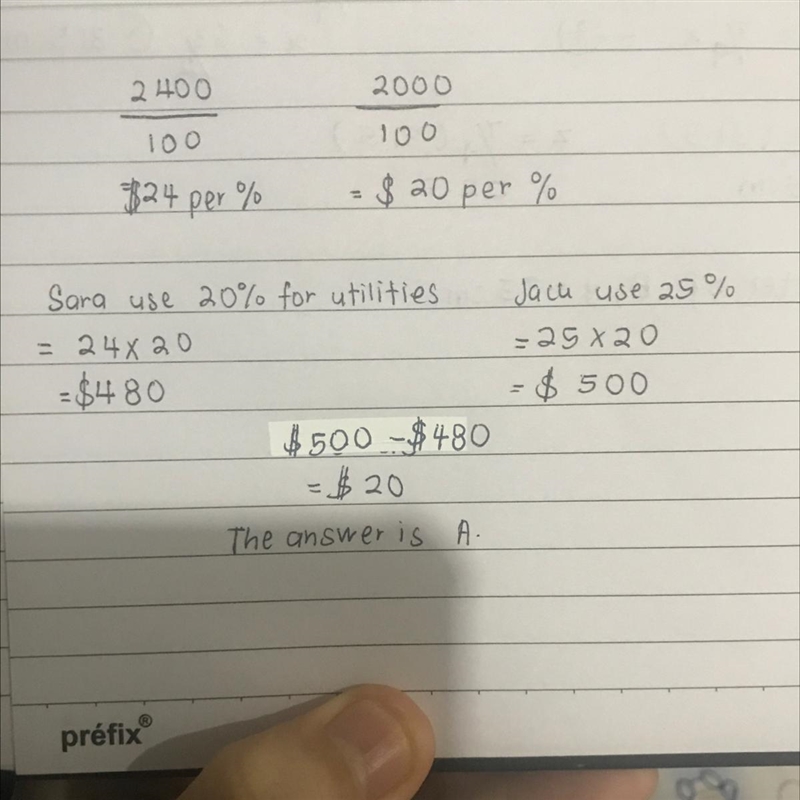 2400 2000
100 100
=$24 per % = $ 20 per %
Sara use 20% for utilities Jacu use 25%
= 24 x 20 = 25 x 20
= $480 = $ 500
$500 - $480
= $ 20
The answer is A.
préfix®